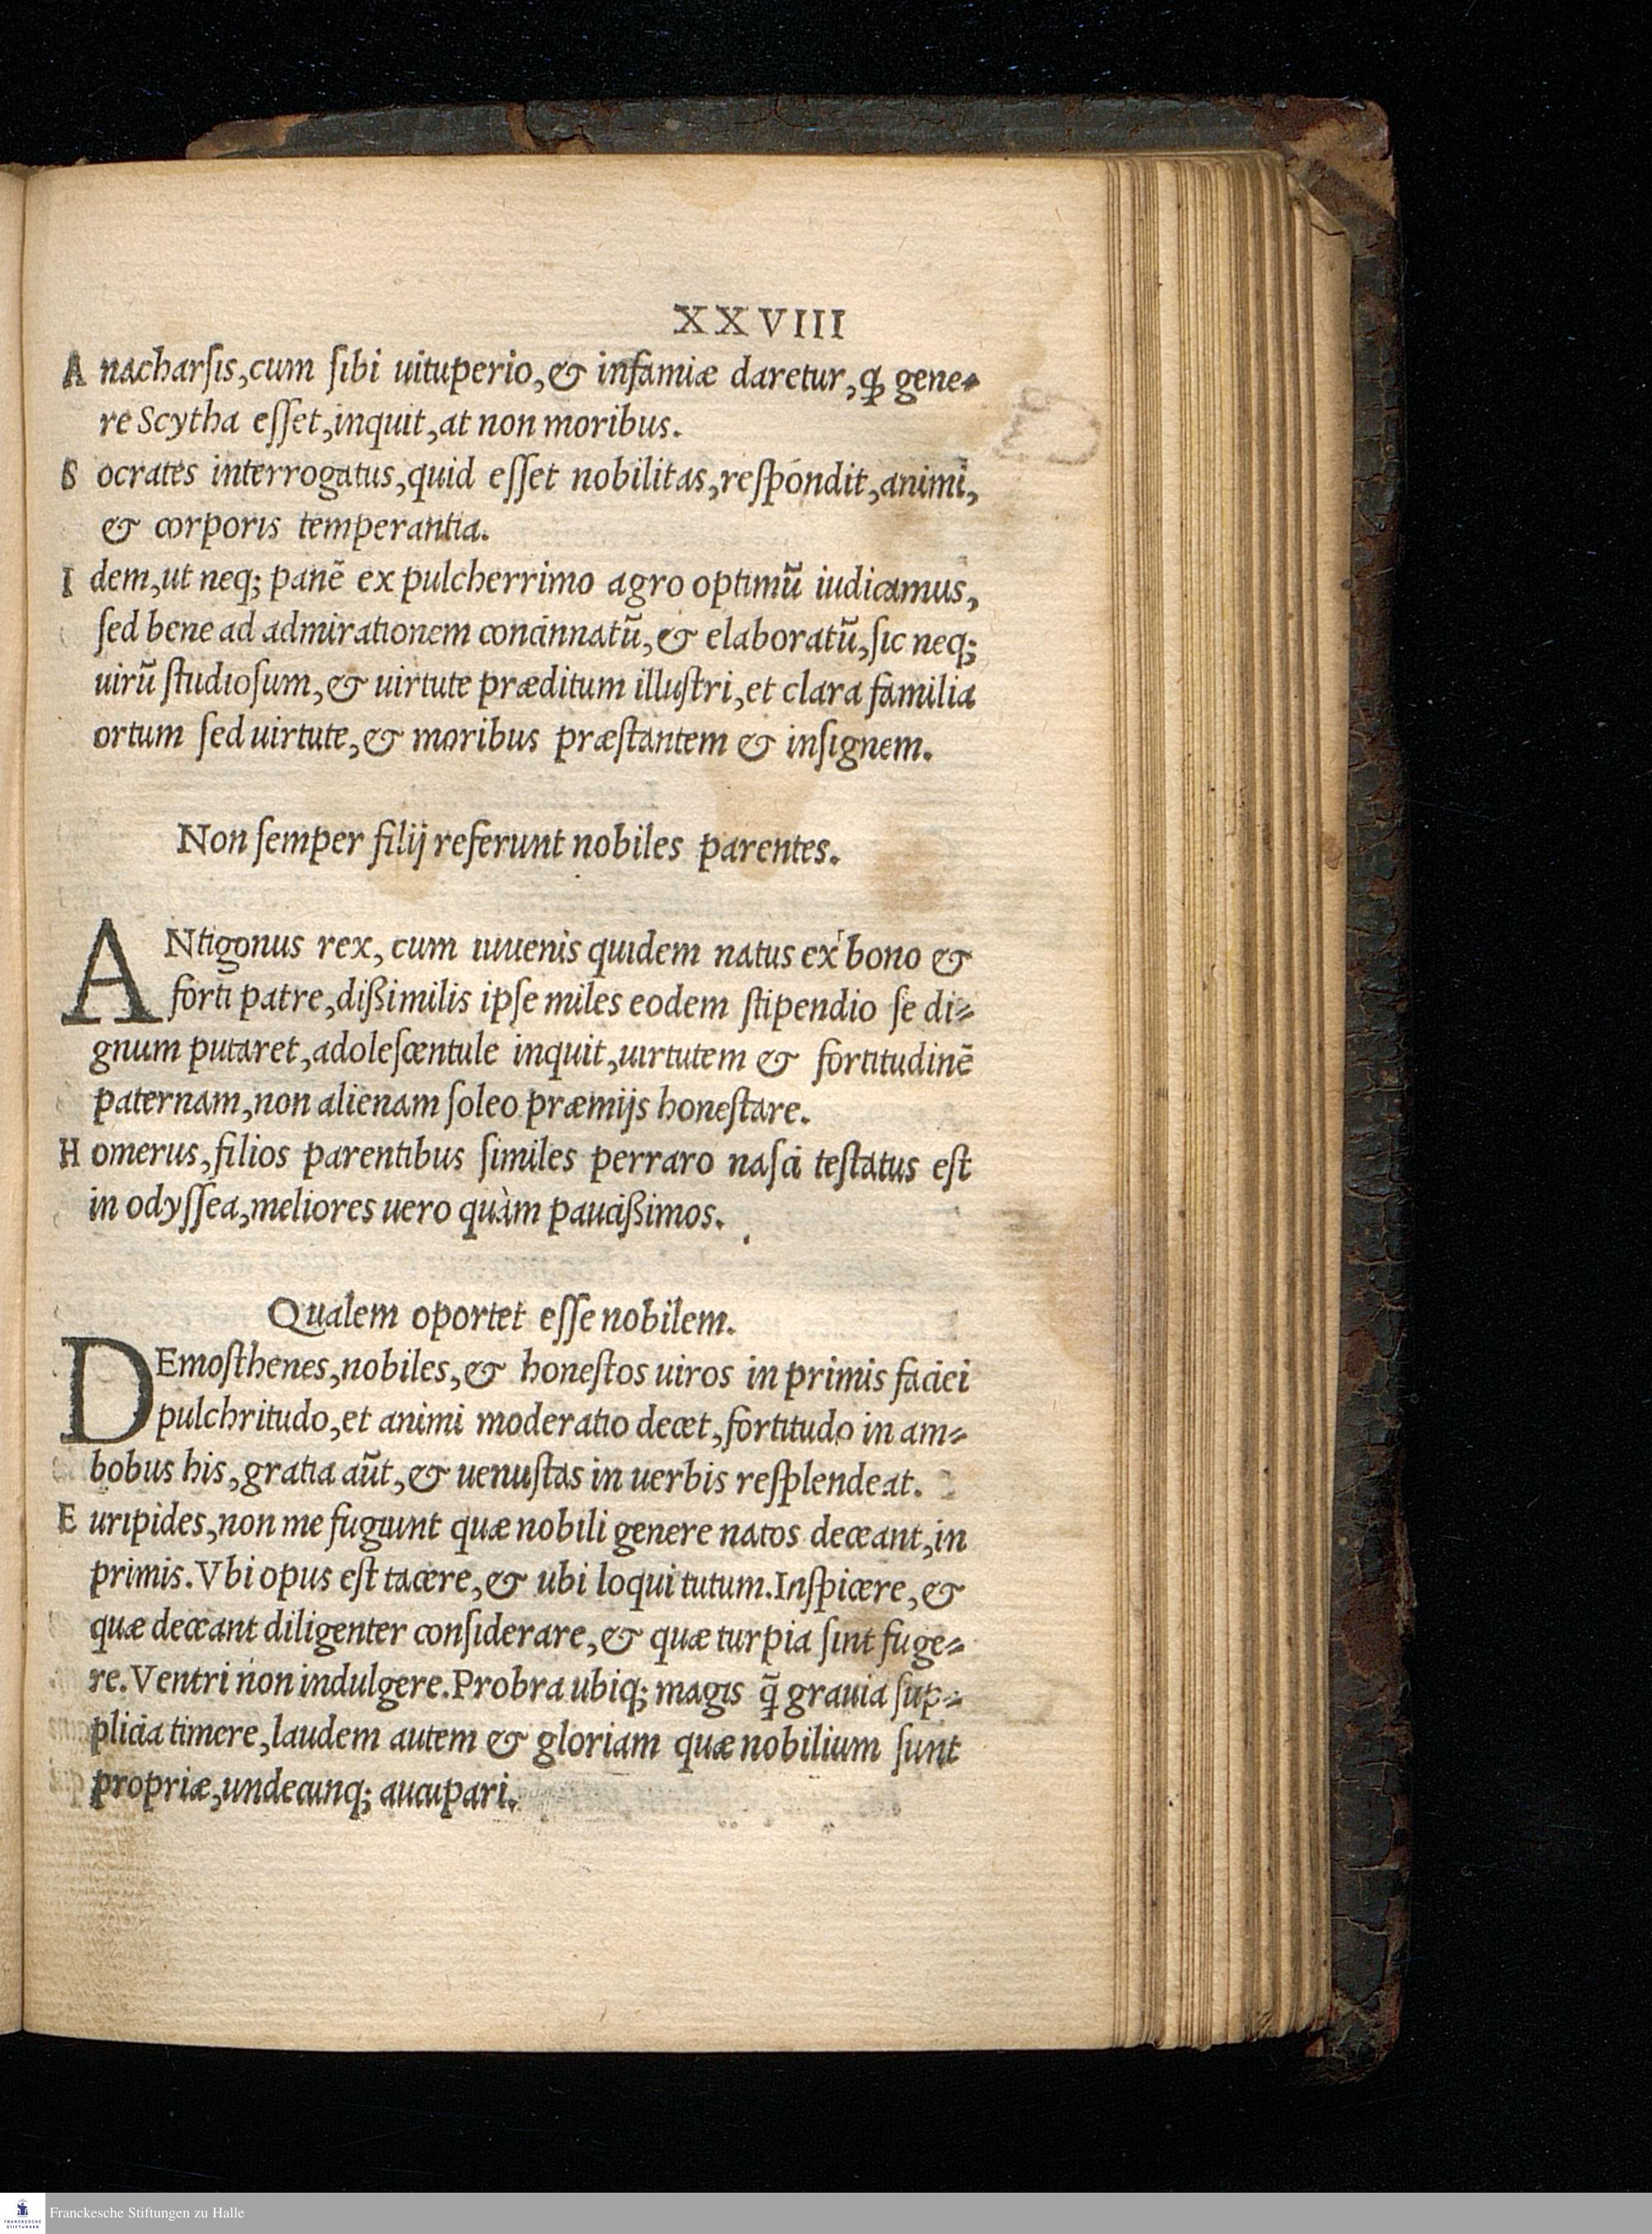 XXVIII
A nacharſis,cum ſibi uituperio,& infamiæ daretur,ꝙ gene-
re Scytha eſſet,inquit,at non moribus.
S ocrates interrogatus,quid eſſet nobilitas,reſpóndit,animi,
& corporis temperantia.
I dem,ut neq; panē ex pulcherrimo agro optimū iudicamus,
ſed bene ad admirationem concinnatū,& elaboratū,ſic neq;
uirū ſtudioſum,& uirtute præditum illuſtri,et clara familia
ortum ſed uirtute,& moribus præſtantem & inſignem.
Non ſemper filij referunt nobiles parentes.
ANtigonus rex, cum iuuenis quidem natus ex bono &
forti patre,dißimilis ipſe miles eodem ſtipendio ſe di-
gnum putaret,adoleſcentule inquit,uirtutem & fortitudinē
paternam,non alienam ſoleo præmijs honeſtare.
H omerus,filios parentibus ſimiles perraro naſci teſtatus eſt
in odyſſea,meliores uero quàm paucißimos.
Qualem oportet eſſe nobilem.
DEmoſthenes,nobiles,& honeſtos uiros in primis faciei
pulchritudo,et animi moderatio decet,fortitudo in am-
bobus his,gratia aūt,& uenuſtas in uerbis reſplendeat.
E uripides,non me fugiunt quæ nobili genere natos deceant,in
primis.Vbi opus eſt tacere,& ubi loqui tutum.Inſpicere,&
quæ deceant diligenter conſiderare,& quæ turpia ſint fuge-
re.Ventri non indulgere.Probra ubiq; magis q̄ grauia ſup-
plicia timere,laudem autem & gloriam quæ nobilium ſunt
propriæ,undecunq; aucupari.
Franckesche Stiftungen zu Halle
FRANCKESCHE
STIFTUNGEN